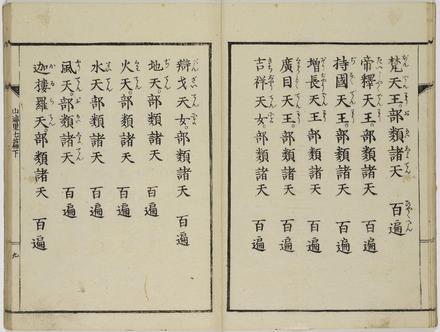 梵天王部類諸天　百遍
帝釋天王部類諸天　百遍
持國天王部類諸天　百遍
增長天王部類諸天　百遍
廣目天王部類諸天　百遍
吉祥天女部類諸天　百遍
辯戈天女部類諸天　百遍
地天部類諸天　百遍
火天部類諸天　百遍
水天部類諸天　百遍
風天部類諸天　百遍
迦樓羅天部類諸天　百遍
九